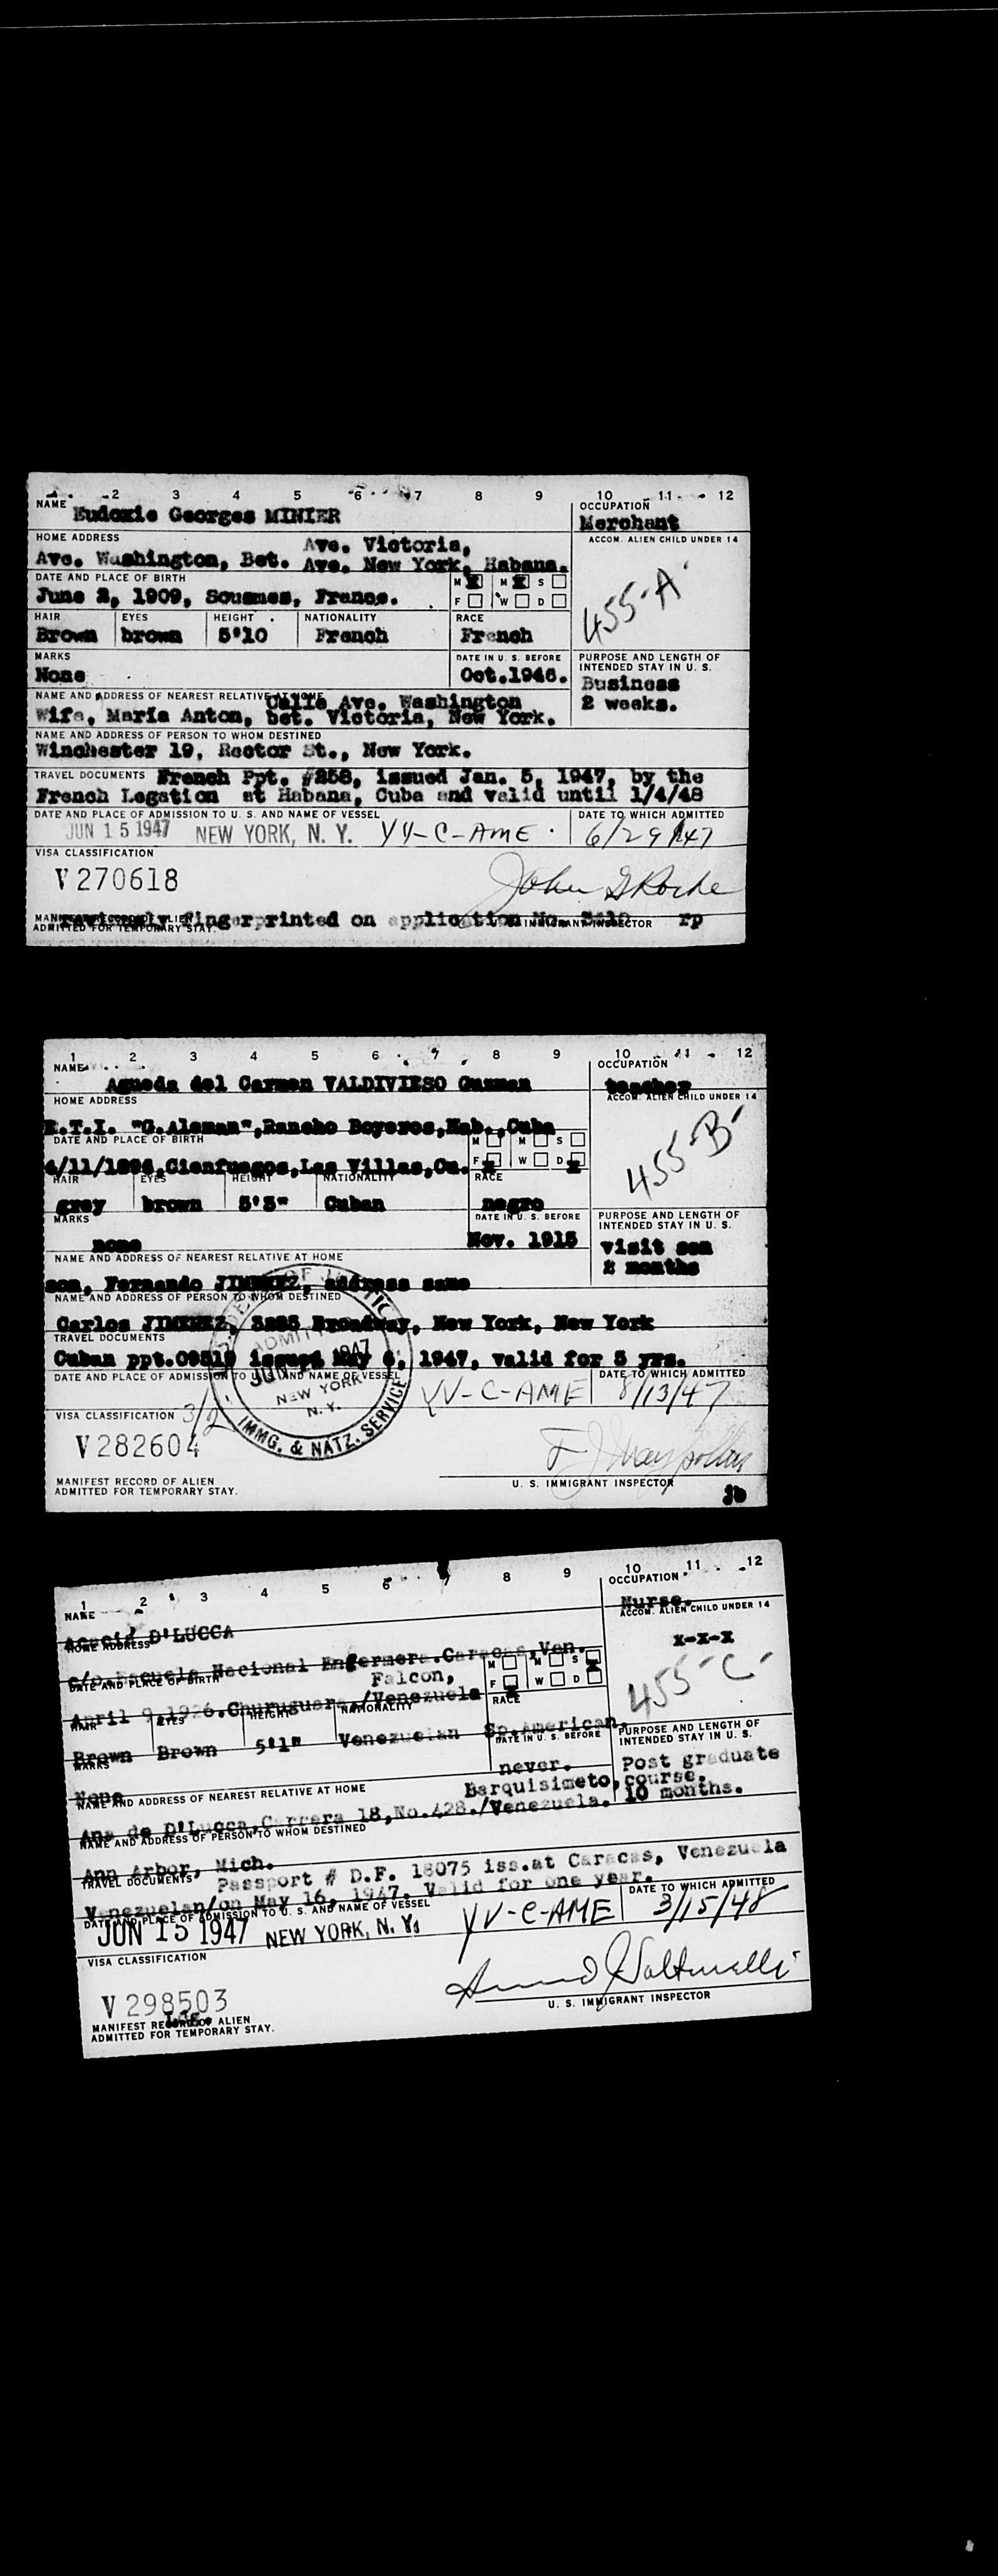 1 2 3 4 5 6 7 8 9 10 11 12
NAME Eudoxie Georges MINIER
OCCUPATION
Merchant
HOME ADDRESS
Ave. Victoria,
Ave. Washington, Bet. Ave. New York, Habana.
ACCOM. ALIEN CHILD UNDER 14
455-A
DATE AND PLACE OF BIRTH
June 2, 1909, France.
M M S
F W D
HAIR EYES HEIGHT NATIONALITY RACE
Brown brown 5'10 French French
MARKS
None
DATE IN U. S. BEFORE
Oct.1946.
PURPOSE AND LENGTH OF
INTENDED STAY IN U. S.
Business
2 weeks.
NAME AND ADDRESS OF NEAREST RELATIVE AT HOME
Calle Ave. Washington
Wife, María Anton, bet. Victoria, New York.
NAME AND ADDRESS OF PERSON TO WHOM DESTINED
Winchester 19, Rector St., New York.
TRAVEL DOCUMENTS French Ppt. #258, issued Jan. 5, 1947, by the
French Legation at Habana, Cuba and valid until 1/4/48
DATE AND PLACE OF ADMISSION TO U. S. AND NAME OF VESSEL
JUN 15 1947 NEW YORK, N. Y. YV-C-AME
DATE TO WHICH ADMITTED
6/29/47
VISA CLASSIFICATION
V 270618
John Roche
fingerprinted on application No. rp
MANIFEST RECORD OF ALIEN
ADMITTED FOR TEMPORARY STAY.
U. S. IMMIGRANT INSPECTOR
1 2 3 4 5 6 7 8 9 10 11 12
NAME
Agueda del Carmen VALDIVIESO Guzman
OCCUPATION
teacher
HOME ADDRESS
E.T.I. "G.Aleman",Rancho Boyeros,Hab.,Cuba
ACCOM. ALIEN CHILD UNDER 14
455-B-
DATE AND PLACE OF BIRTH
Cienfuegos,Las Villas,Cu.
M M S
F W D
HAIR EYES HEIGHT NATIONALITY RACE
grey brown 5'3" Cuban negro
MARKS
none
DATE IN U. S. BEFORE
Nov. 1915
PURPOSE AND LENGTH OF
INTENDED STAY IN U. S.
visit son
2 months
NAME AND ADDRESS OF NEAREST RELATIVE AT HOME
son, Fernando JIMENEZ, address same
NAME AND ADDRESS OF PERSON TO WHOM DESTINED
Carlos JIMENEZ, Broadway, New York, New York
TRAVEL DOCUMENTS
Cuban ppt. issued May 6, 1947, valid for 5 yrs.
DATE AND PLACE OF ADMISSION TO U. S. AND NAME OF VESSEL
ADMITTED
JUN 1947
NEW YORK
N. Y.
IMMG. & NATZ. SERVICE
YV-C-AME
DATE TO WHICH ADMITTED
8/13/47
VISA CLASSIFICATION
V 282604
MANIFEST RECORD OF ALIEN
ADMITTED FOR TEMPORARY STAY.
U. S. IMMIGRANT INSPECTOR
1 2 3 4 5 6 7 8 9 10 11 12
NAME
D'LUCCA
OCCUPATION
Nurse.
HOME ADDRESS
c/o. Escuela Nacional Enfermera.Caracas,Ven.
ACCOM. ALIEN CHILD UNDER 14
X-X-X
455-C-
DATE AND PLACE OF BIRTH
Falcon,
April 9,1926.Churuguara./Venezuela
M M S
F W D
HAIR EYES HEIGHT NATIONALITY RACE
Brown Brown 5'1" Venezuelan Sp.American.
MARKS
None
DATE IN U. S. BEFORE
never.
PURPOSE AND LENGTH OF
INTENDED STAY IN U. S.
Post graduate
course.
10 months.
NAME AND ADDRESS OF NEAREST RELATIVE AT HOME
Barquisimeto,
Ana de D'Lucca,Carrera 18,No.428./Venezuela.
NAME AND ADDRESS OF PERSON TO WHOM DESTINED
Ann Arbor, Mich.
TRAVEL DOCUMENTS
Passport # D.F. 18075 iss.at Caracas, Venezuela
Venezuelan/on May 16, 1947. Valid for one year.
DATE AND PLACE OF ADMISSION TO U. S. AND NAME OF VESSEL
JUN 15 1947 NEW YORK, N. Y. YV-C-AME
DATE TO WHICH ADMITTED
3/15/48
VISA CLASSIFICATION
V 298503
MANIFEST RECORD OF ALIEN
ADMITTED FOR TEMPORARY STAY.
U. S. IMMIGRANT INSPECTOR